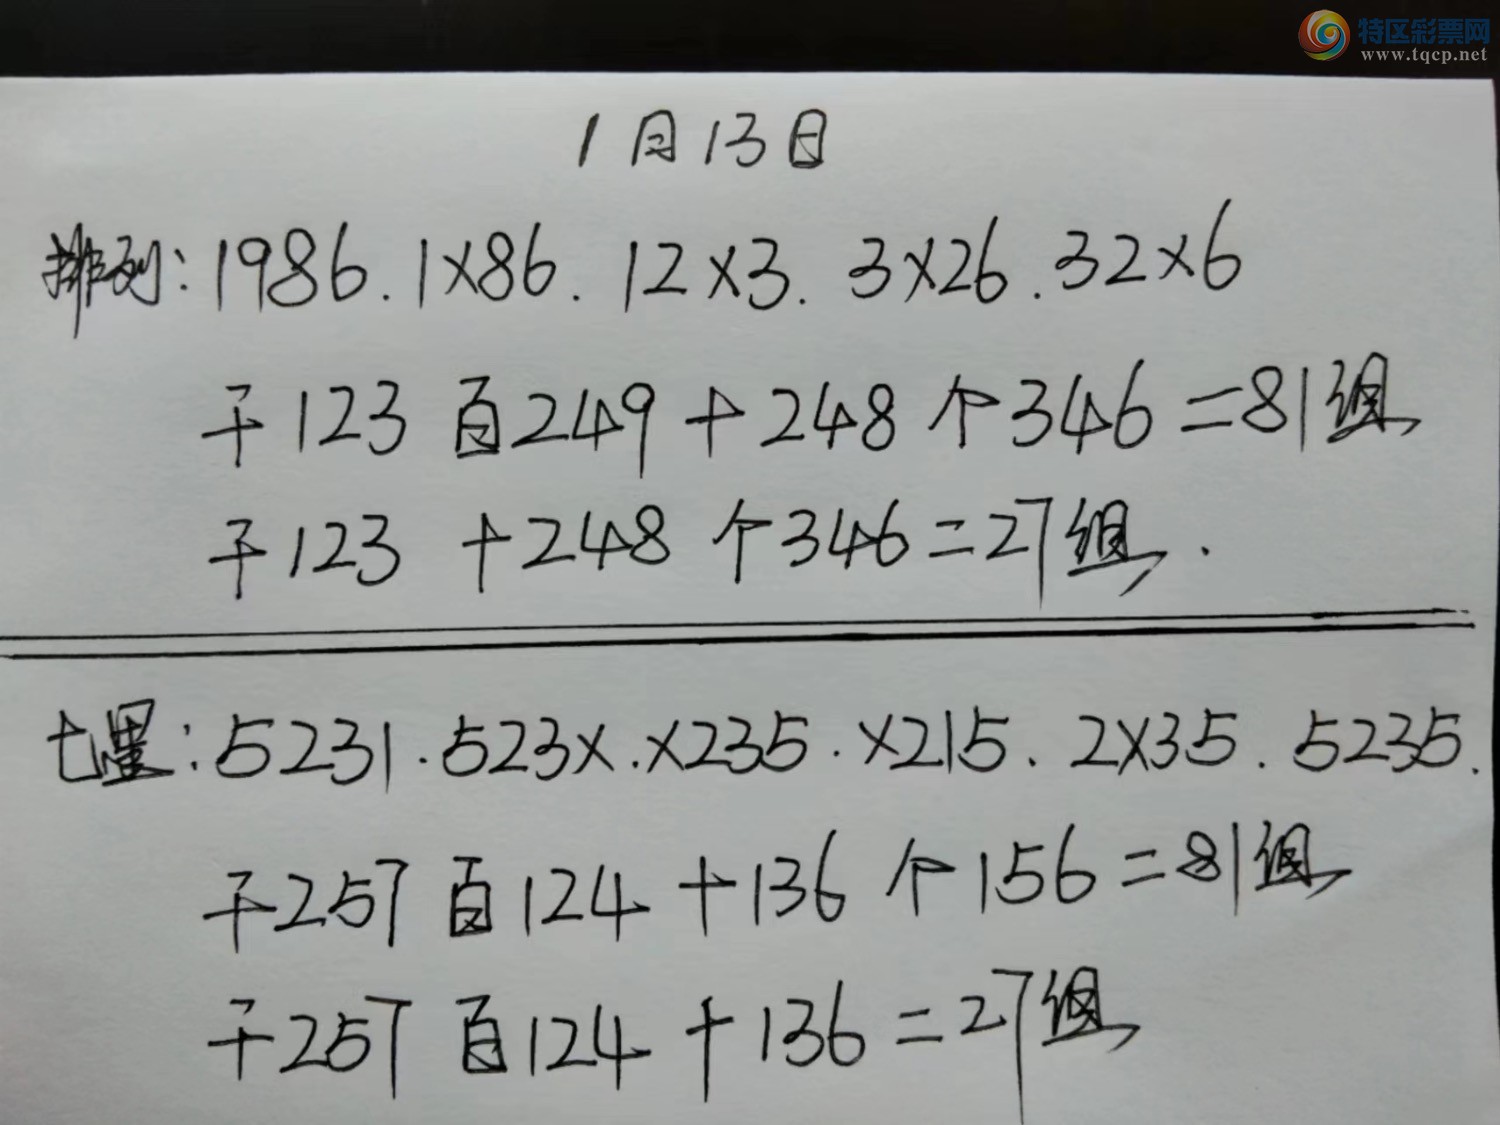 特区彩票网
www.tqcp.net
1月13日
排列:1986.1X86.12X3.3X26.32X6
千123 百249 十248 个346=81组
千123 十248 个346=27组.
七星:5231.523X.X235.X215.2X35.5235.
千257 百124 十136 个156=81组
千257 百124 十136=27组